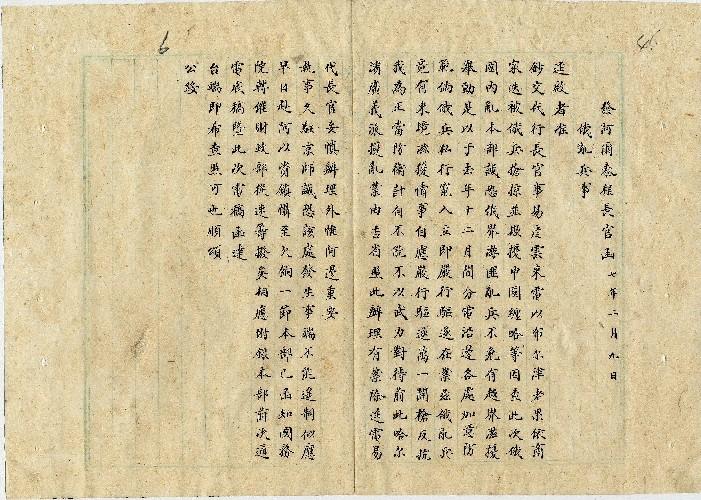 46
6
發阿爾泰程長官函 七年二月九日
俄亂兵事
逕啟者准
鈔交代行長官事易 雲來電以布尔津老果依商
家迭被俄兵搶掠並擬擾中國 等因查此次俄
國內亂本部誠恐俄界 匪亂兵不免有越界滋擾
舉動是以于去年十二月間分電沿邊各處加意防
範倘俄兵私行竄入立即嚴行驅逐在案茲俄亂兵
竟有來境滋擾情事自應嚴行驅逐萬一開槍反抗
我為正當防衛計自不能不以武力對待前此哈尔
濱 義 擾亂業由吉省照此辦理有案除逕電易
代長官妥慎辦理外惟阿邊重要
執事久駐京師誠恐該處發生事端不能遙制似應
早日赴阿以資鎮懾至欠餉一節本部已函知國務
院轉催財政部從速籌撥矣相應附錄本部前次通
電底稿暨此次電稿函達
台端即布查照可也順頌
公綏